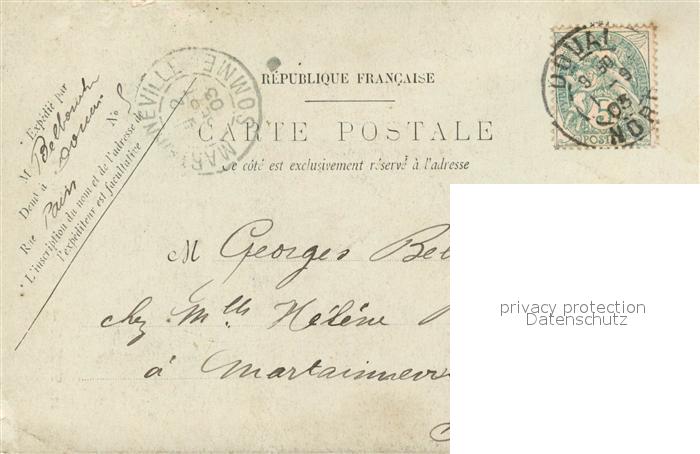 RÉPUBLIQUE FRANÇAISE
CARTE POSTALE
Ce côté est exclusivement réservé à l'adresse
* Expédié par
M
Demt à Douai
Rue Paris No 5
* L'inscription du nom et de l'adresse de
l'expéditeur est facultative
DOUAI
NORD
SOMME
POSTES
M Georges Bel
chez Mlle Hélène
à Martainnev
privacy protection
Datenschutz